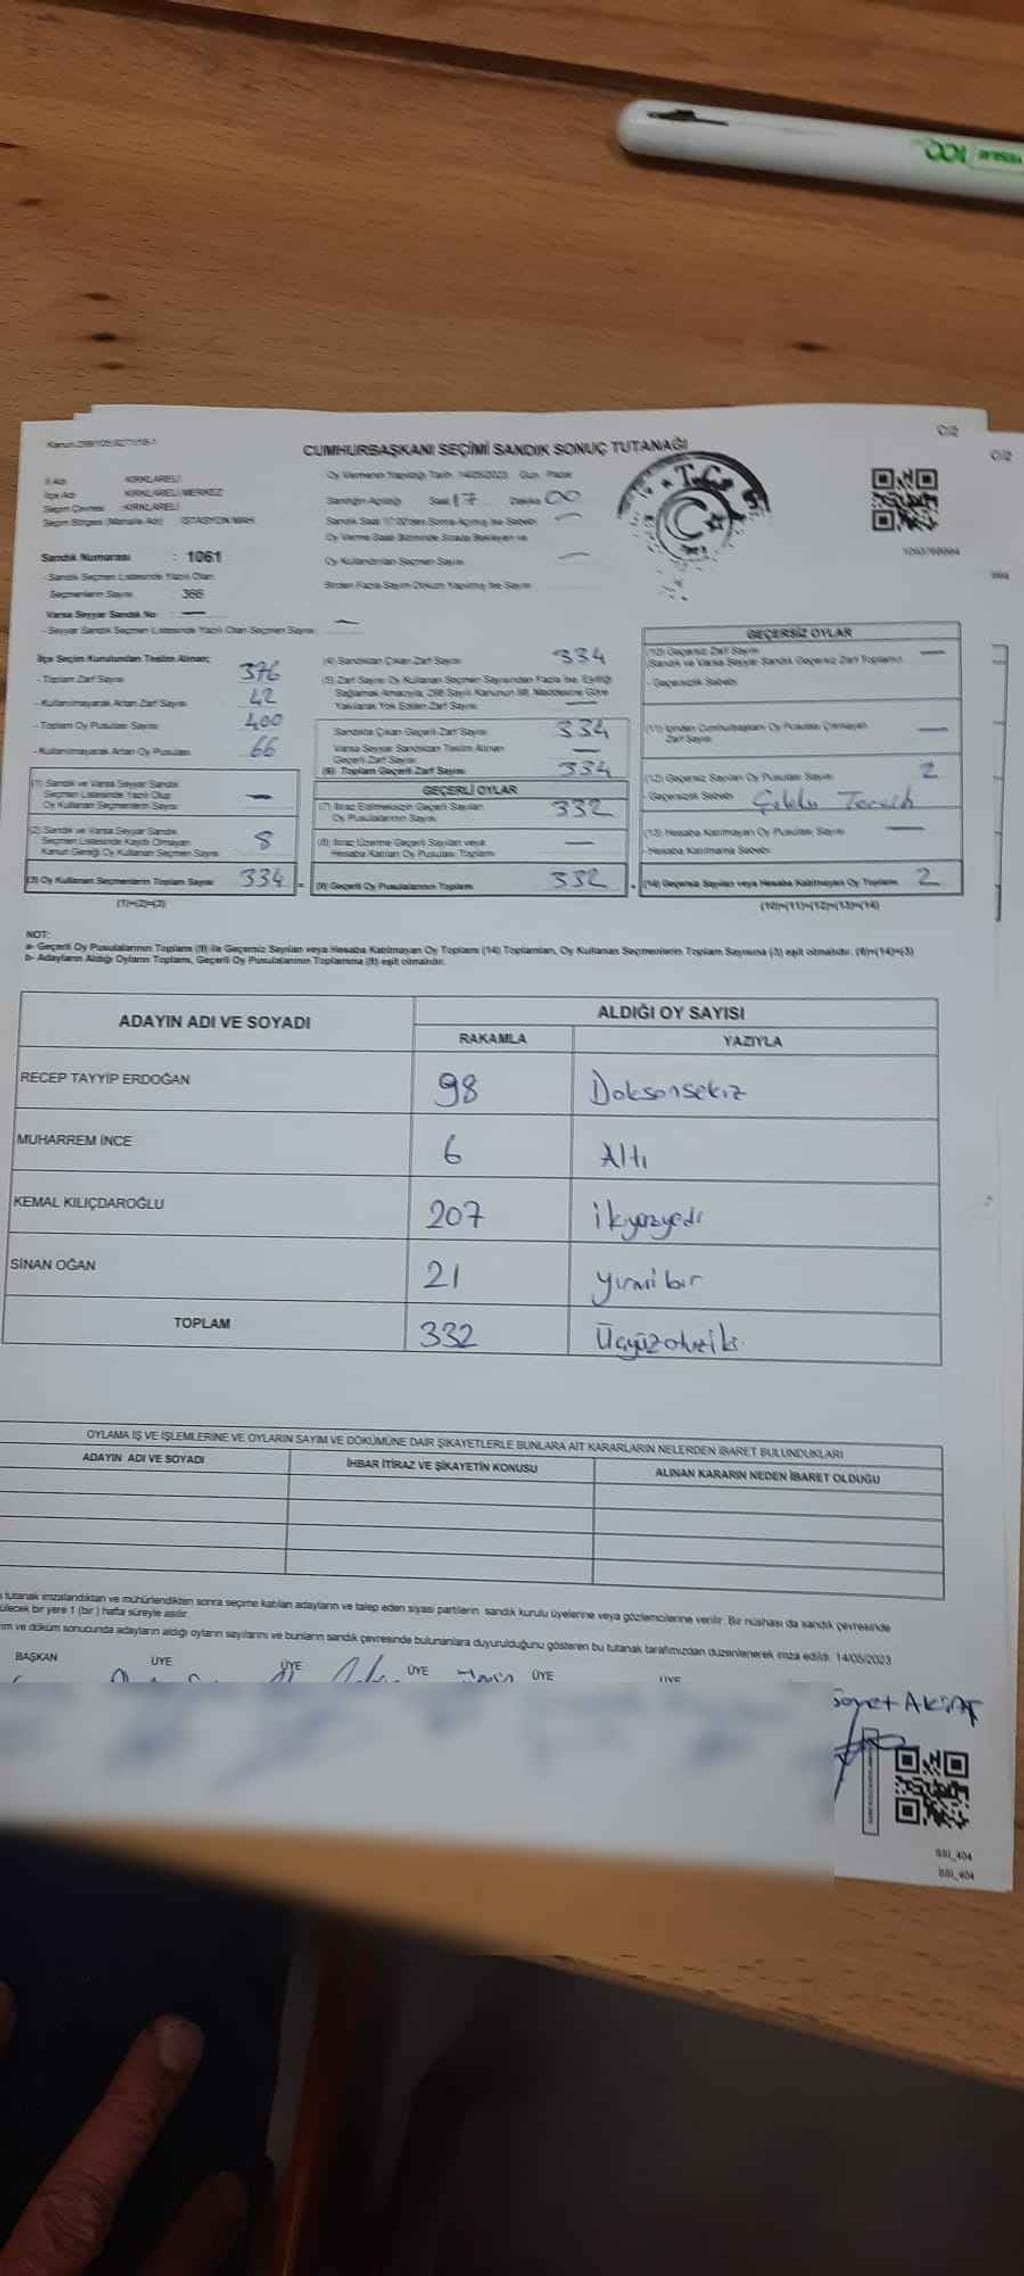 C/2
C/2
CUMHURBAŞKANI SEÇİMİ SANDIK SONUÇ TUTANAĞI
İl Adı KIRKLARELİ
İlçe Adı KIRKLARELİ MERKEZ
Seçim Çevresi KIRKLARELİ
Seçim Bölgesi (Mahalle Adı) İSTASYON MAH
Oy Vermenin Yapıldığı Tarih 14/05/2023 Gün Pazar
Sandığın Açılışı Saat 17 Dakika 00
Sandık Saat 17:00'den Sonra Açılmış İse Sebebi
Oy Kullandırılan Seçmen Sayısı
Birden Fazla Sayım Döküm Yapılmış İse Sayısı
T.C.
Sandık Numarası : 1061
- Sandık Seçmen Listesinde Yazılı Olan
Seçmenlerin Sayısı 366
Varsa Seyyar Sandık No : —
- Seyyar Sandık Seçmen Listesinde Yazılı Olan Seçmen Sayısı —
İlçe Seçim Kurulundan Teslim Alınan;
- Toplam Zarf Sayısı 376
- Kullanılmayarak Artan Zarf Sayısı 42
- Toplam Oy Pusulası Sayısı 400
- Kullanılmayarak Artan Oy Pusulası 66
(1) Sandık ve Varsa Seyyar Sandık
Seçmen Listesinde Yazılı Olup
Oy Kullanan Seçmenlerin Sayısı —
(2) Sandık ve Varsa Seyyar Sandık
Seçmen Listesinde Kaydı Olmayan
Kanun Gereği Oy Kullanan Seçmen Sayısı 8
(3) Oy Kullanan Seçmenlerin Toplam Sayısı 334
(1)+(2)=(3)
(4) Sandıktan Çıkan Zarf Sayısı 334
(5) Zarf Sayısı Oy Kullanan Seçmen Sayısından Fazla İse, Eşitliği
Sağlamak Amacıyla, 298 Sayılı Kanunun 98. Maddesine Göre
Yakılarak Yok Edilen Zarf Sayısı —
Sandıkta Çıkan Geçerli Zarf Sayısı 334
Varsa Seyyar Sandıktan Teslim Alınan
Geçerli Zarf Sayısı —
(6) Toplam Geçerli Zarf Sayısı 334
GEÇERLİ OYLAR
(7) İtiraz Edilmeksizin Geçerli Sayılan
Oy Pusulalarının Sayısı 332
(8) İtiraz Üzerine Geçerli Sayılan veya
Hesaba Katılan Oy Pusulası Toplamı —
(9) Geçerli Oy Pusulalarının Toplamı 332
GEÇERSİZ OYLAR
(10) Geçersiz Zarf Sayısı —
(Sandık ve Varsa Seyyar Sandık Geçersiz Zarf Toplamı)
- Geçersizlik Sebebi
(11) İçinden Cumhurbaşkanı Oy Pusulası Çıkmayan
Zarf Sayısı —
(12) Geçersiz Sayılan Oy Pusulası Sayısı 2
- Geçersizlik Sebebi
(13) Hesaba Katılmayan Oy Pusulası Sayısı —
- Hesaba Katılmama Sebebi
(14) Geçersiz Sayılan veya Hesaba Katılmayan Oy Toplamı 2
(10)+(11)+(12)+(13)=(14)
NOT:
a- Geçerli Oy Pusulalarının Toplamı (9) ile Geçersiz Sayılan veya Hesaba Katılmayan Oy Toplamı (14) Toplamları, Oy Kullanan Seçmenlerin Toplam Sayısına (3) eşit olmalıdır. (9)+(14)=(3)
b- Adayların Aldığı Oyların Toplamı, Geçerli Oy Pusulalarının Toplamına (9) eşit olmalıdır.
ADAYIN ADI VE SOYADI ALDIĞI OY SAYISI
RAKAMLA YAZIYLA
RECEP TAYYİP ERDOĞAN 98 Doksansekiz
MUHARREM İNCE 6 Altı
KEMAL KILIÇDAROĞLU 207 ikiyüzyedi
SİNAN OĞAN 21 yirmibir
TOPLAM 332 Üçyüzotuziki
OYLAMA İŞ VE İŞLEMLERİNE VE OYLARIN SAYIM VE DÖKÜMÜNE DAİR ŞİKAYETLERLE BUNLARA AİT KARARLARIN NELERDEN İBARET BULUNDUKLARI
ADAYIN ADI VE SOYADI İHBAR İTİRAZ VE ŞİKAYETİN KONUSU ALINAN KARARIN NEDEN İBARET OLDUĞU
tutanak imzalandıktan ve mühürlendikten sonra seçime katılan adayların ve talep eden siyasi partilerin sandık kurulu üyelerine veya gözlemcilerine verilir. Bir nüshası da sandık çevresinde
bir yere 1 (bir) hafta süreyle asılır.
ve döküm sonucunda adayların aldığı oyların sayılarını ve bunların sandık çevresinde bulunanlara duyurulduğunu gösteren bu tutanak tarafımızdan düzenlenerek imza edildi. 14/05/2023
BAŞKAN ÜYE ÜYE ÜYE ÜYE ÜYE
SSI_404
SSI_404